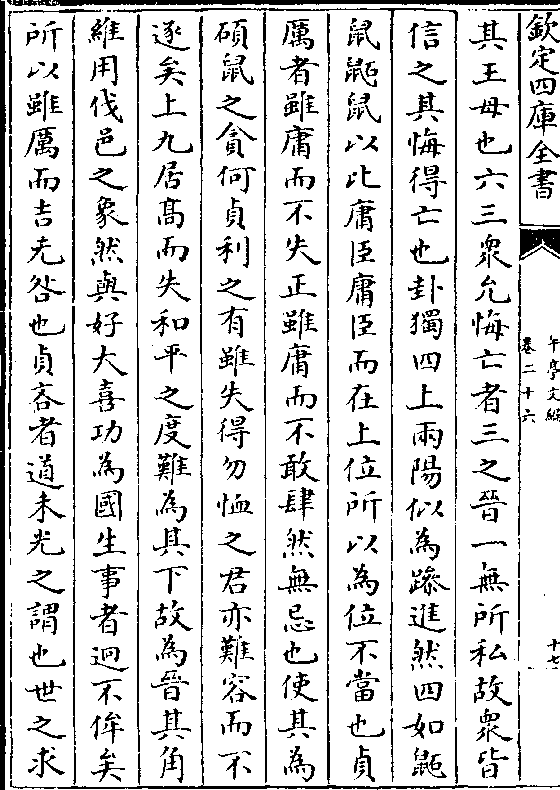 欽定四庫全書
午亭文編
卷二十六
十七
其王母也六三衆允悔亡者三之晉一無所私故衆皆
信之其悔得亡也卦獨四上兩陽似為躁進然四如鼫
鼠鼫鼠以比庸臣庸臣而在上位所以為位不當也貞
厲者雖庸而不失正雖庸而不敢肆然無忌也使其為
碩鼠之貪何貞利之有雖失得勿恤之君亦難容而不
逐矣上九居髙而失和平之度難為其下故為晉其角
維用伐邑之象然與好大喜功為國生事者迥不侔矣
所以雖厲而吉无咎也貞吝者道未光之謂也世之求